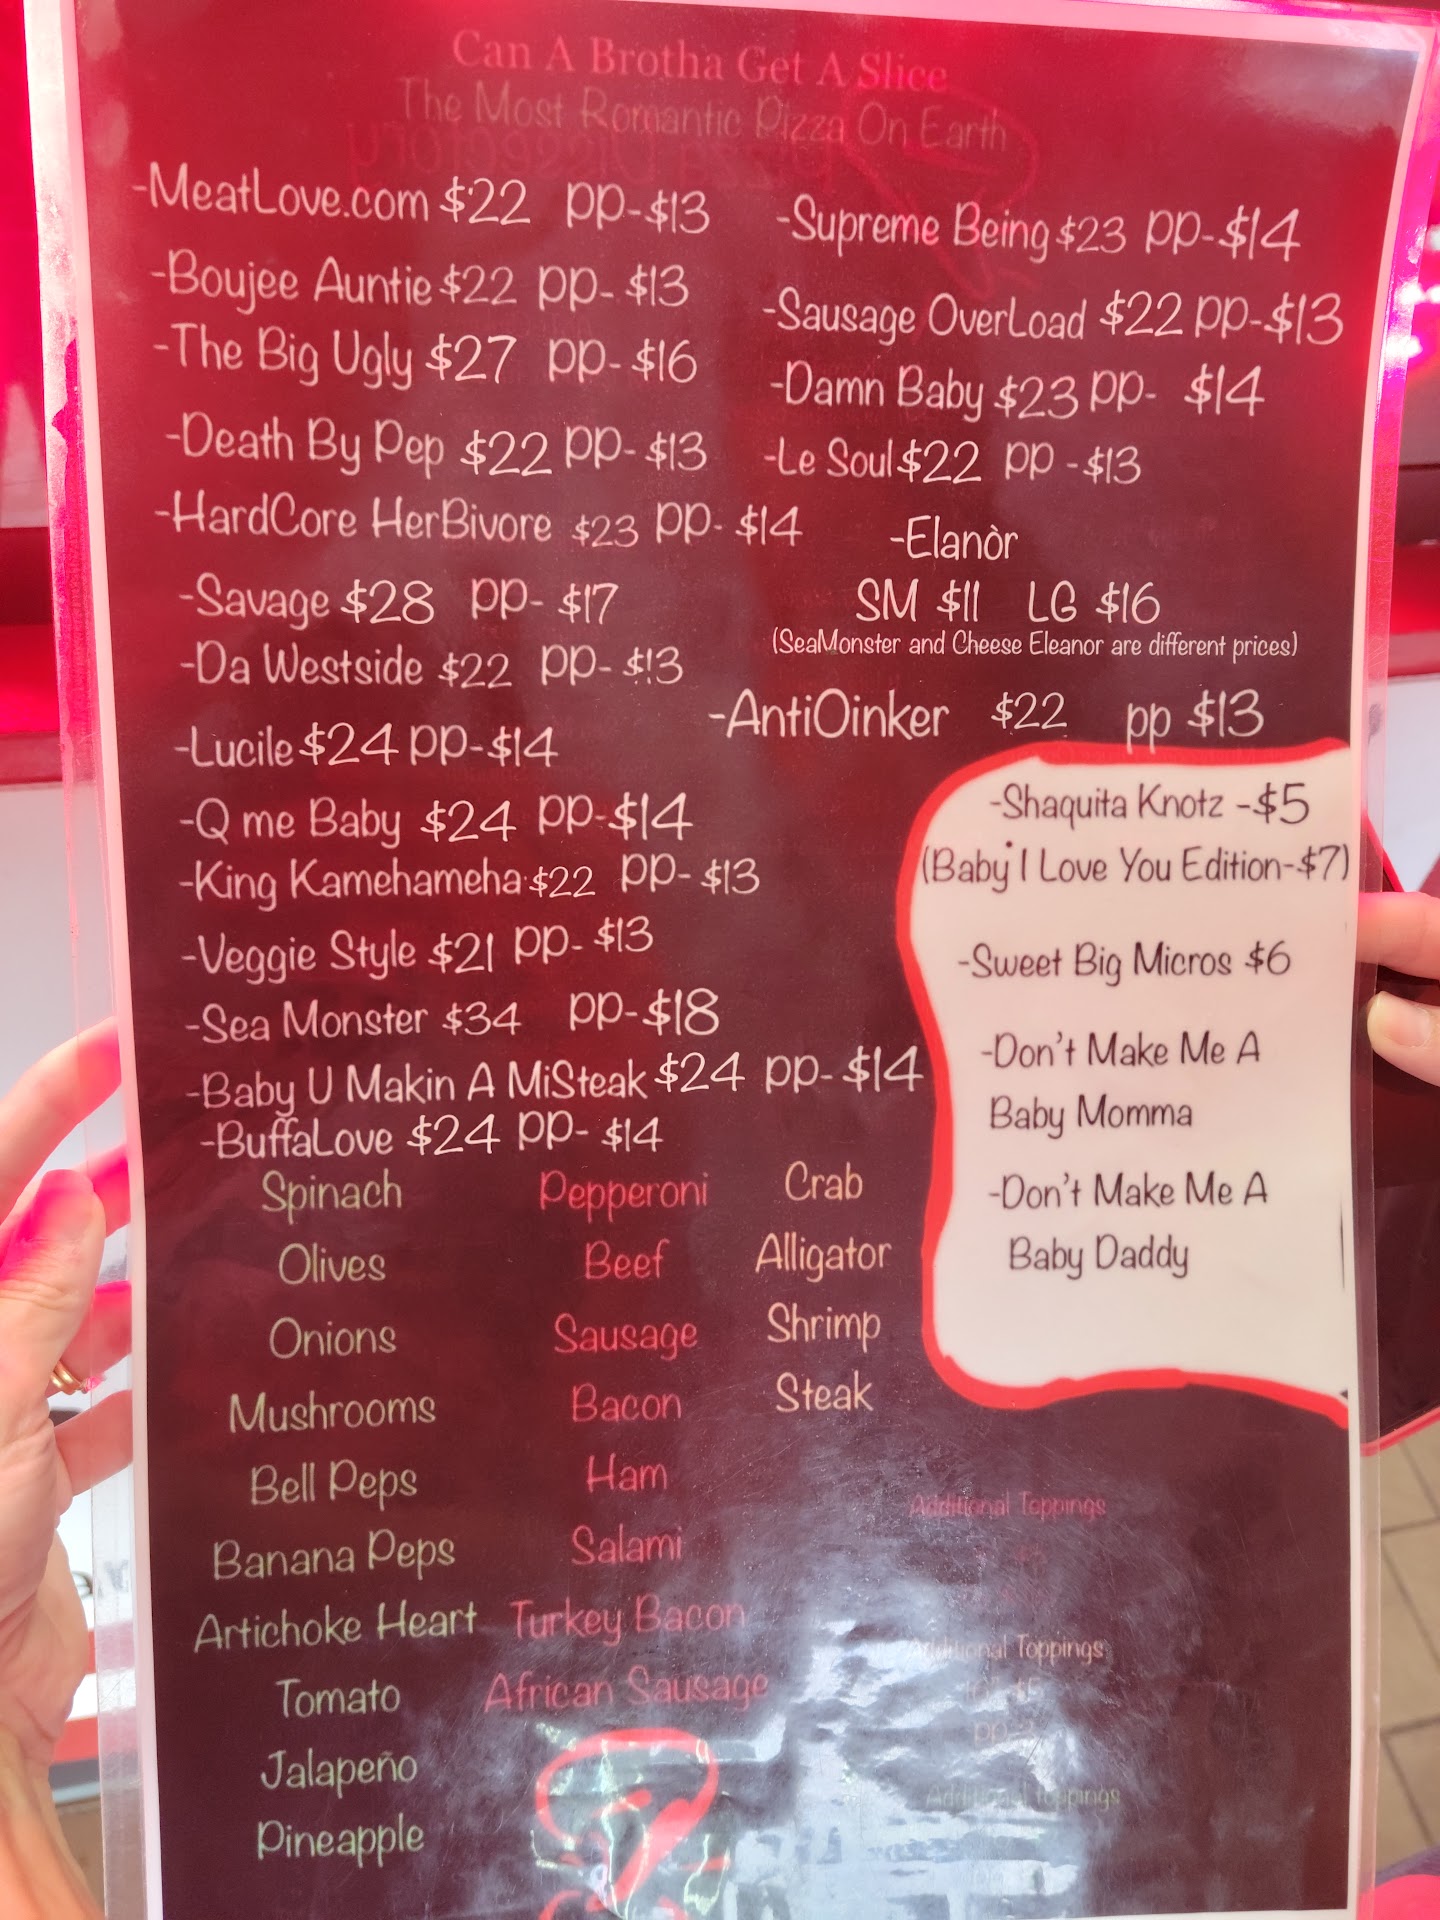 Can A Brotha Get A Slice
The Most Romantic Pizza On Earth
-MeatLove.com $22 pp-$13
-Boujee Auntie $22 pp- $13
-The Big Ugly $27 pp- $16
-Death By Pep $22 pp- $13
-HardCore HerBivore $23 pp- $14
-Savage $28 pp- $17
-Da Westside $22 pp- $13
-Lucile $24 pp-$14
-Q me Baby $24 pp-$14
-King Kamehameha $22 pp- $13
-Veggie Style $21 pp- $13
-Sea Monster $34 pp-$18
-Baby U Makin A MiSteak $24 pp- $14
-BuffaLove $24 pp- $14
-Supreme Being $23 pp-$14
-Sausage OverLoad $22 pp-$13
-Damn Baby $23 pp- $14
-Le Soul $22 pp -$13
-Elanòr
SM $11 LG $16
(SeaMonster and Cheese Eleanor are different prices)
-AntiOinker $22 pp $13
-Shaquita Knotz -$5
(Baby I Love You Edition-$7)
-Sweet Big Micros $6
-Don't Make Me A
Baby Momma
-Don't Make Me A
Baby Daddy
Spinach
Olives
Onions
Mushrooms
Bell Peps
Banana Peps
Artichoke Heart
Tomato
Jalapeño
Pineapple
Pepperoni
Beef
Sausage
Bacon
Ham
Salami
Turkey Bacon
African Sausage
Crab
Alligator
Shrimp
Steak
Additional Toppings
Additional Toppings
Additional Toppings